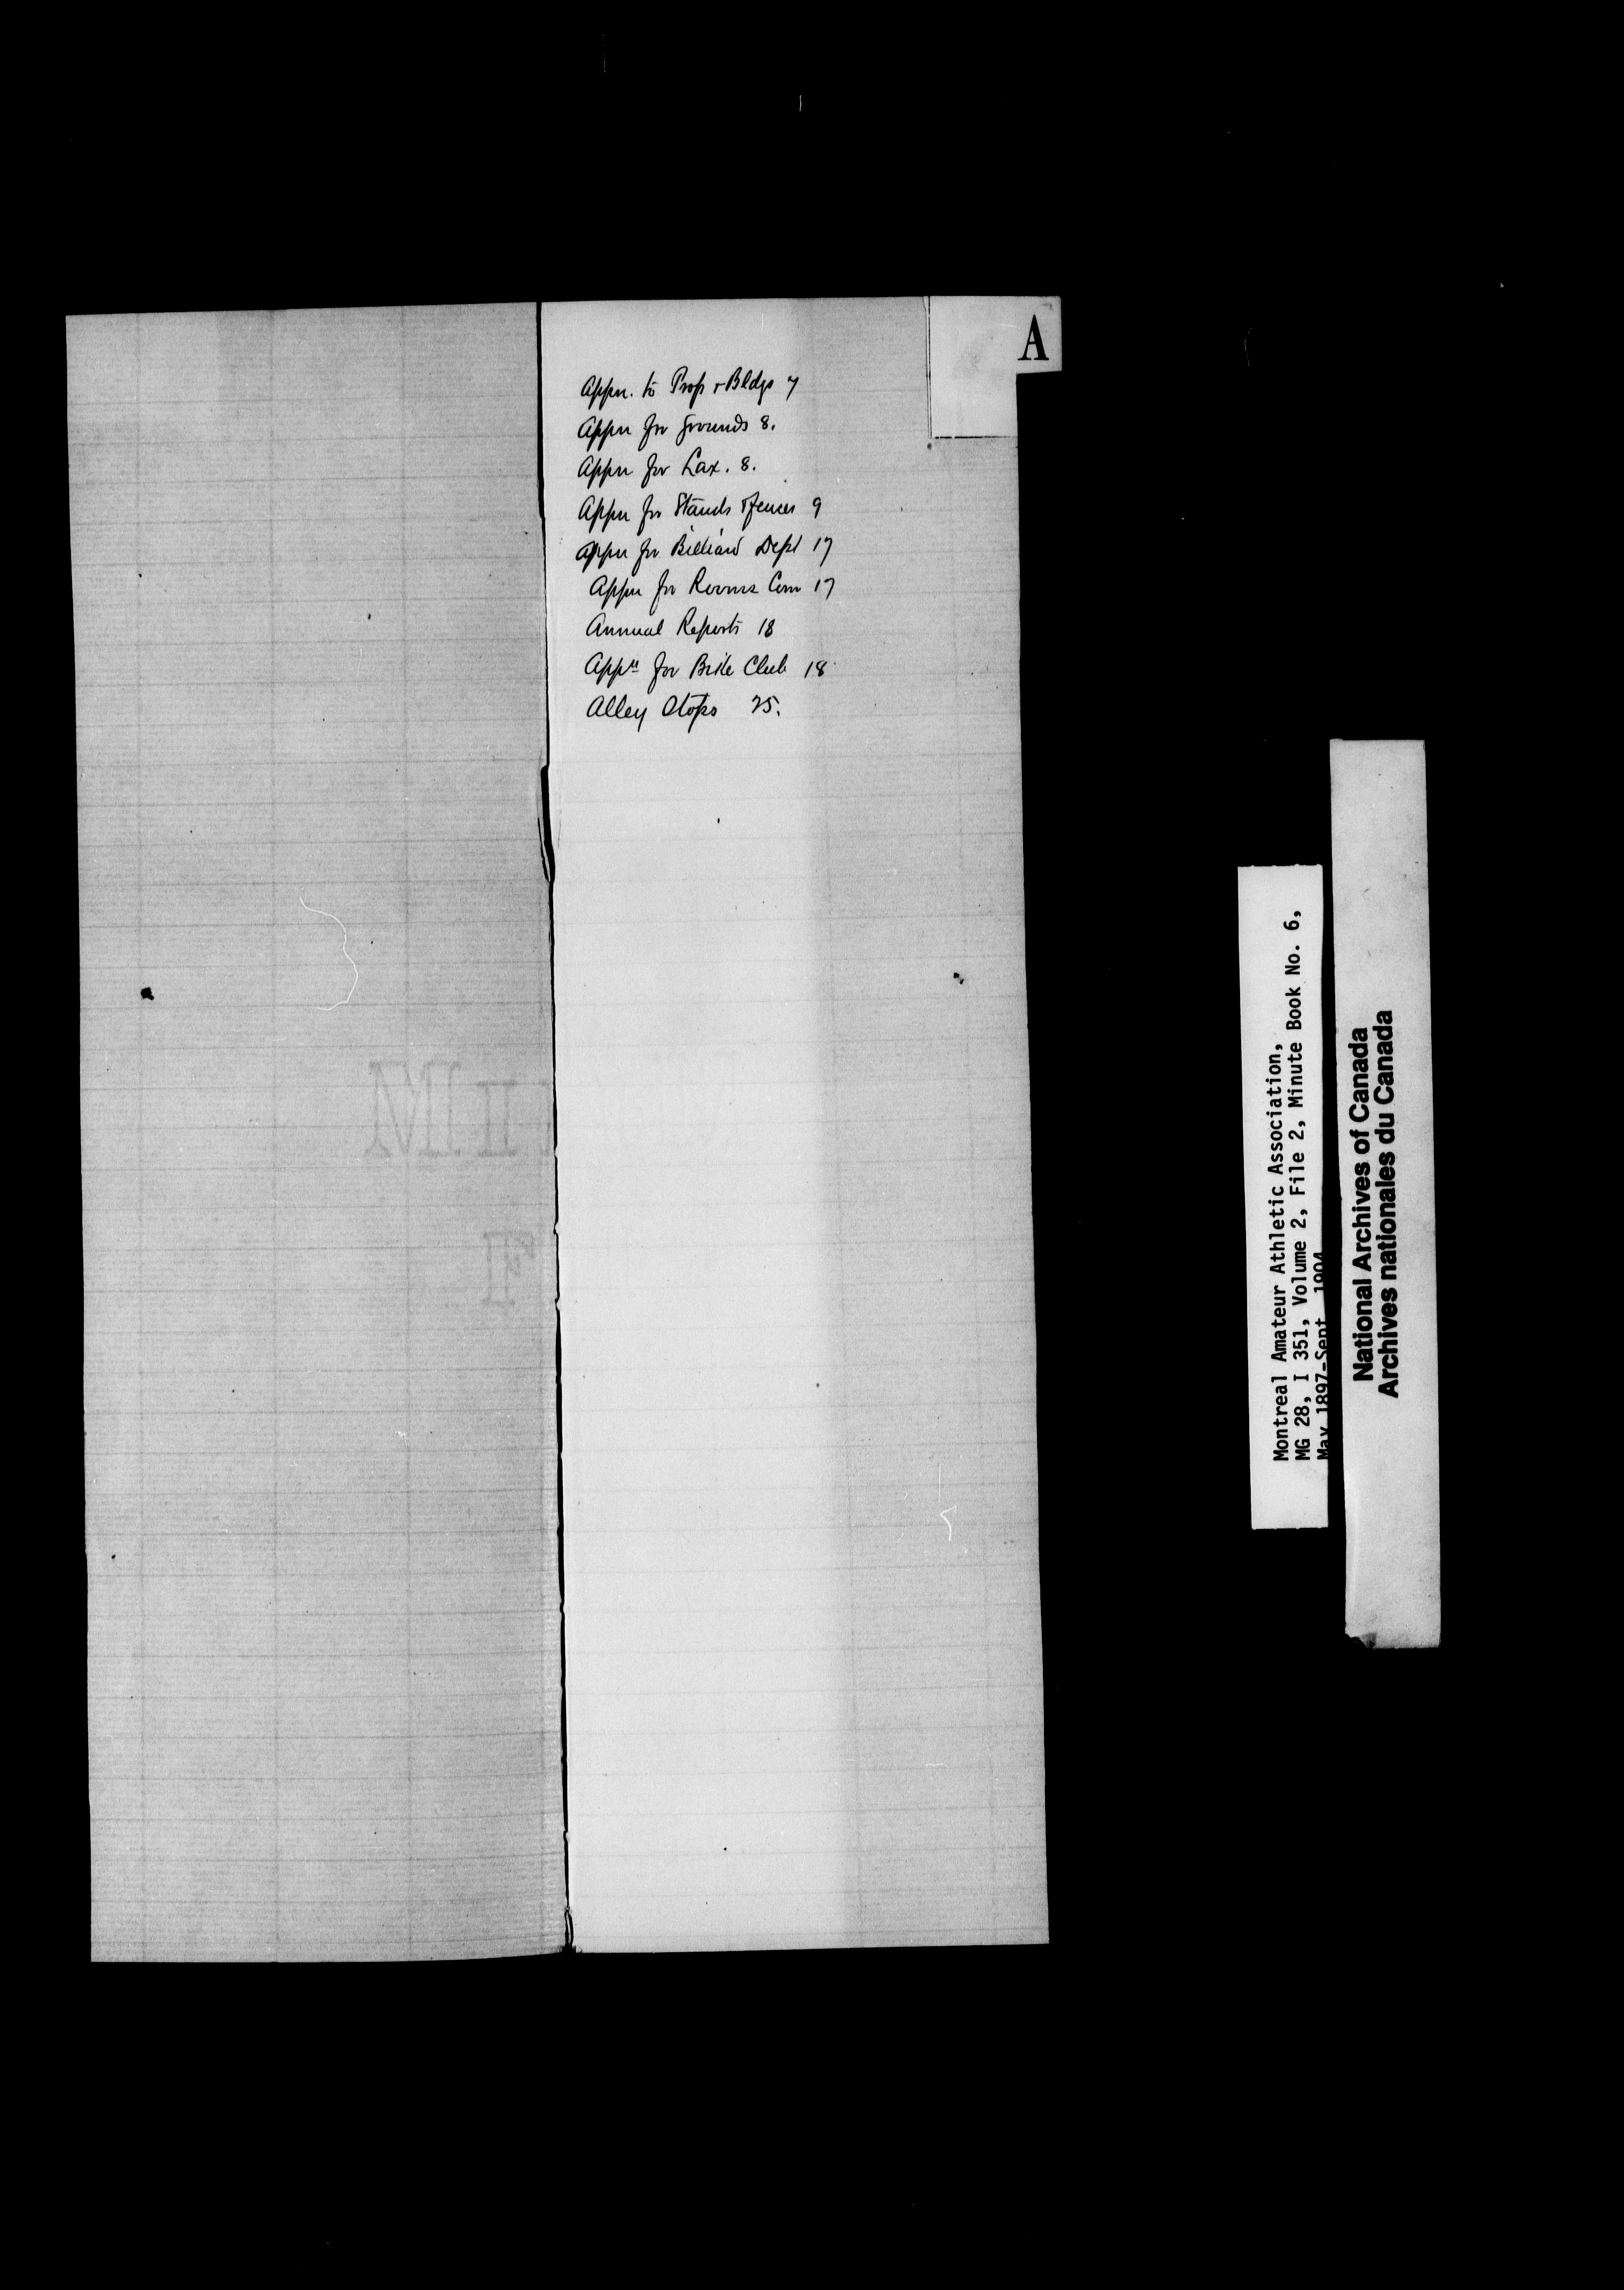 A
Appn. to Prop & Bldgs 7
Appn for Grounds 8.
Appn for Lax. 8.
Appn for Stands & fences 9
Appn for Billiard Dept 17
Appn for Rooms Com 17
Annual Reports 18
Appn for Bike Club 18
Alley Stops 25.
Montreal Amateur Athletic Association,
MG 28, I 351, Volume 2, File 2, Minute Book No. 6,
May 1897-Sept 1904
National Archives of Canada
Archives nationales du Canada